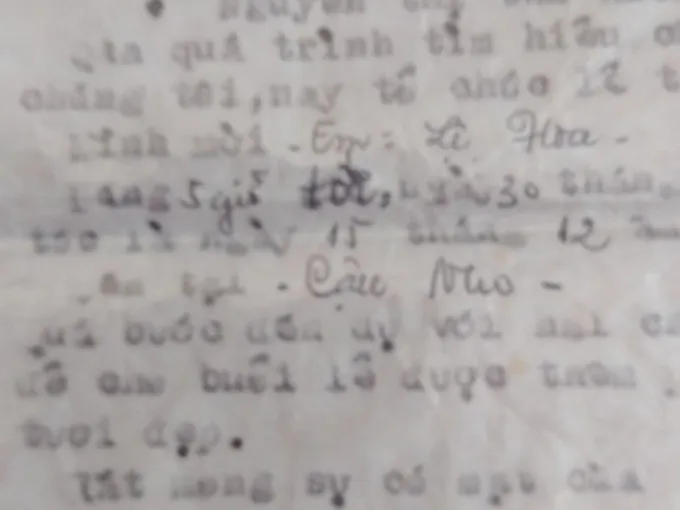 Nguyễn thị
Qua quá trình tìm hiểu
chúng tôi, nay tổ chức lễ t
Kính mời - Em: Lê Hoa -
5 giờ tối, ngày 30 tháng
tức là ngày 15 tháng 12
tại - Cậu Nho -
bước đến dự với hai
để cho buổi lễ được thêm
tươi đẹp.
Rất mong sự có mặt của